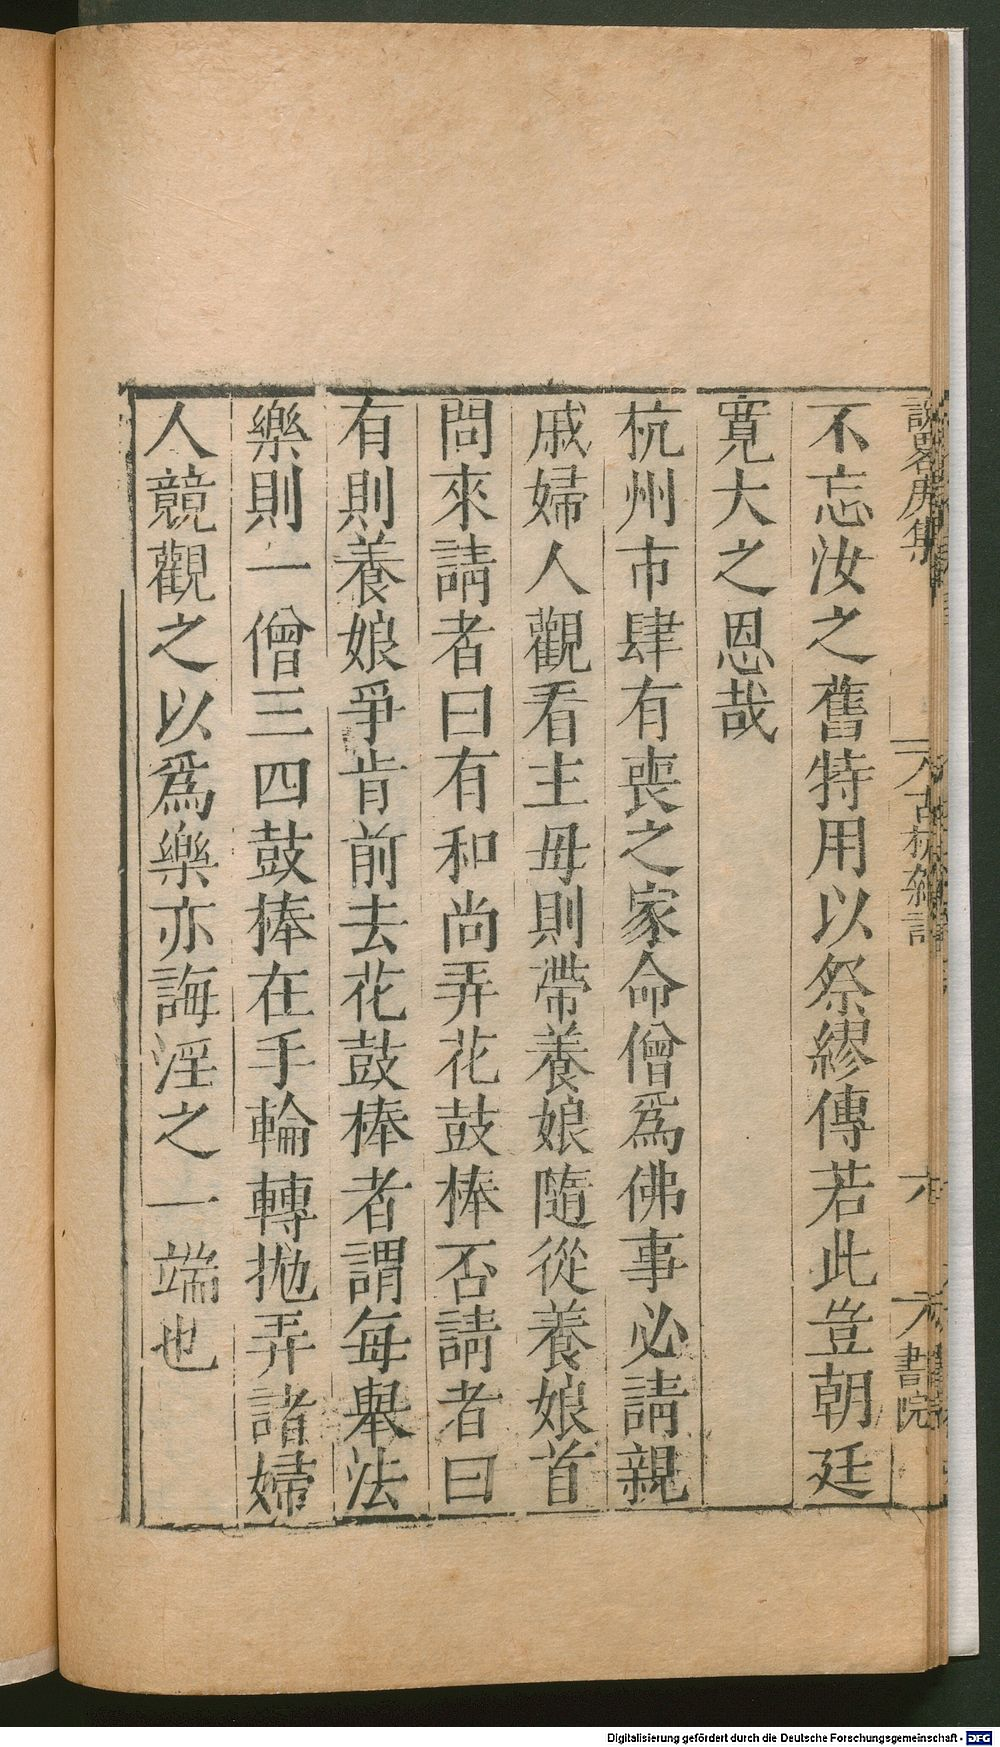 不忘汝之舊特用以祭繆傳若此豈朝廷
寛大之恩哉
杭州市肆有喪之家命僧爲佛事必請親
戚婦人觀看主母則帶養娘隨從養娘首
問來請者曰有和尚弄花鼓棒否請者曰
有則養娘爭肯前去花鼓棒者謂每舉法
樂則一僧三四鼓棒在手輪轉抛弄諸婦
人競觀之以爲樂亦誨淫之一端也
古杭雜記
六
書院
Digitalisierung gefördert durch die Deutsche Forschungsgemeinschaft - DFG